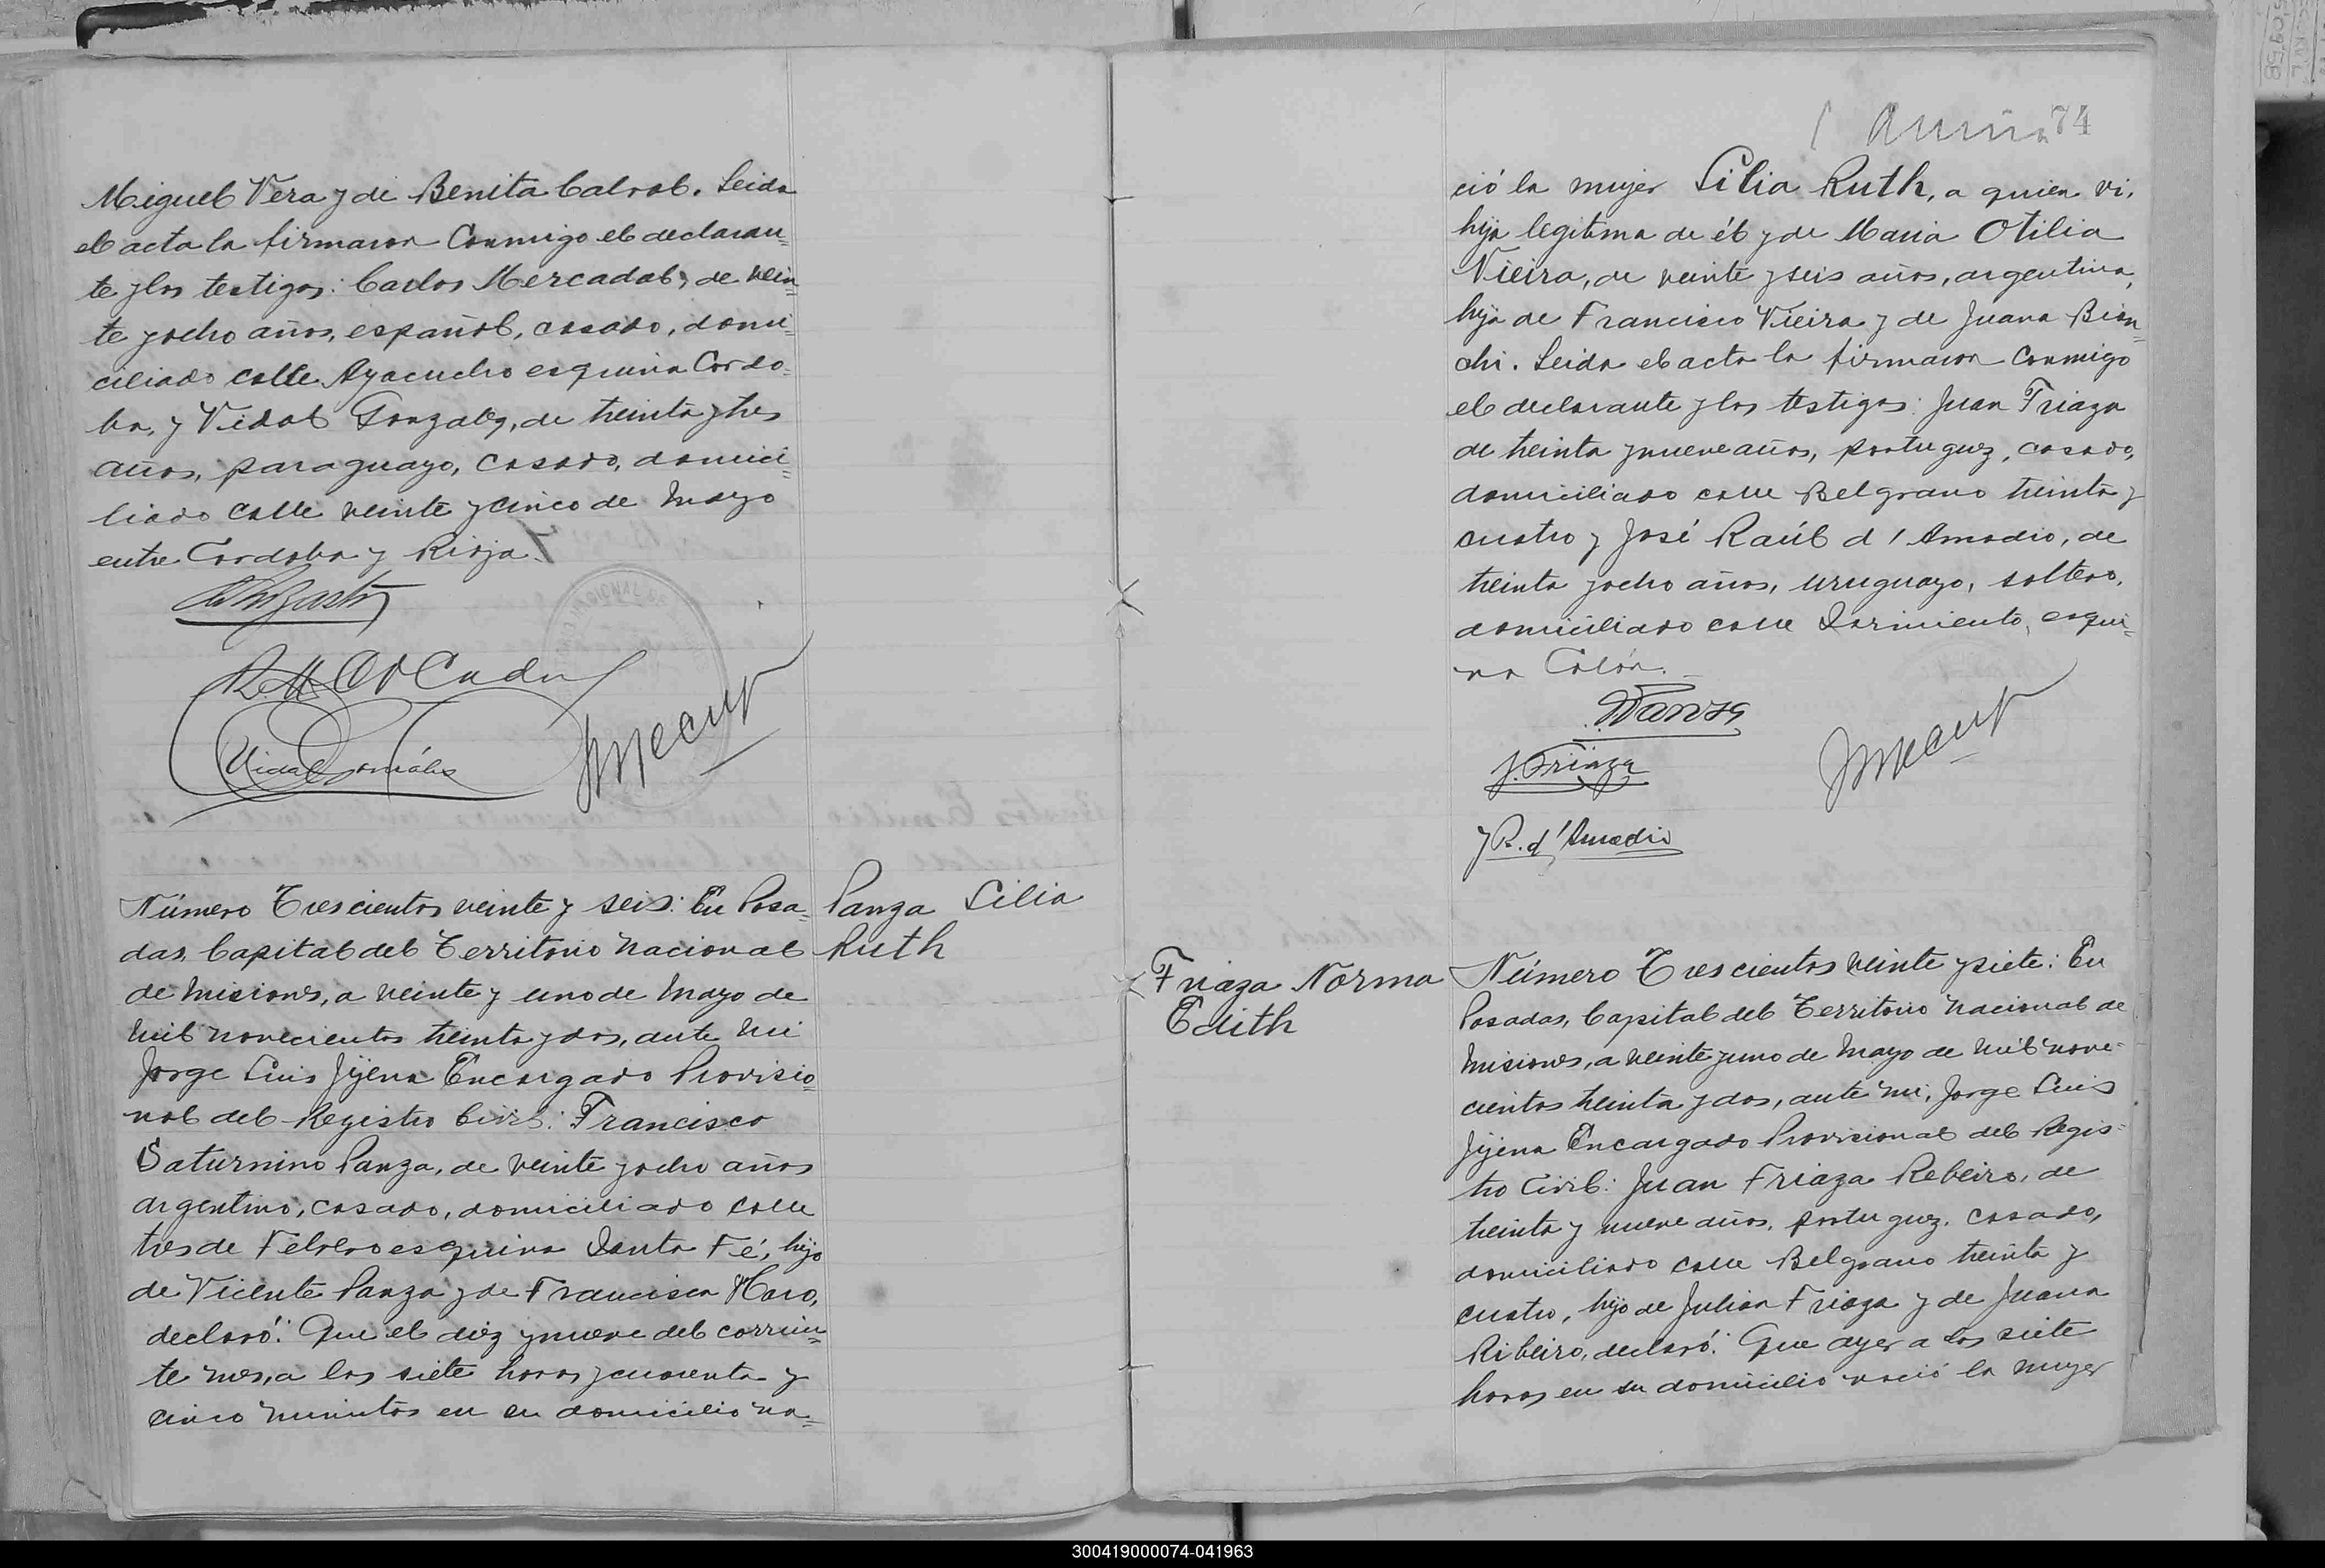 Miguel Vera y de Benita Cabral. Leida
el acta la firmaron Conmigo el declaran=
te y los testigos: Carlos Mercadal, de vein=
te y ocho años, español, casado, domi=
ciliado calle Ayacucho esquina Cordo=
ba, y Vidal Gonzalez, de treinta y tres
años, paraguayo, casado, domici=
liado calle veinte y cinco de Mayo
entre Cordoba y Rioja.
Vidal González
Número Trescientos veinte y seis: En Posa=
das, Capital del Territorio Nacional
de Misiones, a veinte y uno de Mayo de
mil novecientos treinta y dos, ante mi
Jorge Luis Jijena Encargado Provisio=
nal del Registro Civil: Francisco
Saturnino Panza, de veinte y ocho años
argentino, casado, domiciliado calle
tres de Febrero esquina Santa Fé, hijo
de Vicente Panza y de Francisca Haro,
declaró: Que el diez y nueve del corrien=
te mes, a las siete horas y cuarenta y
cinco minutos en su domicilio na=
Panza Lilia
Ruth
74
ció la mujer Lilia Ruth, a quien vi,
hija legitima de él y de Maria Otilia
Vieira, de veinte y seis años, argentina,
hija de Francisco Vieira y de Juana Bian=
chi. Leida el acta la firmaron Conmigo
el declarante y los testigos: Juan Friaza
de treinta y nueve años, portuguez, casado,
domiciliado calle Belgrano treinta y
cuatro y José Raúl d'Amadio, de
treinta y ocho años, uruguayo, soltero,
domiciliado calle Sarmiento, esqui=
na Colón.
Panza
J. Friaza
J R. d'Amadio
Friaza Norma
Edith
Número Trescientos veinte y siete: En
Posadas, Capital del Territorio Nacional de
Misiones, a veinte y uno de Mayo de mil nove=
cientos treinta y dos, ante mi, Jorge Luis
Jijena Encargado Provisional del Regis=
tro Civil: Juan Friaza Rebeiro, de
treinta y nueve años, portuguez, casado,
domiciliado calle Belgrano treinta y
cuatro, hijo de Julian Friaza y de Juana
Ribeiro, declaró: Que ayer a las siete
horas en su domicilio nació la mujer
300419000074-041963